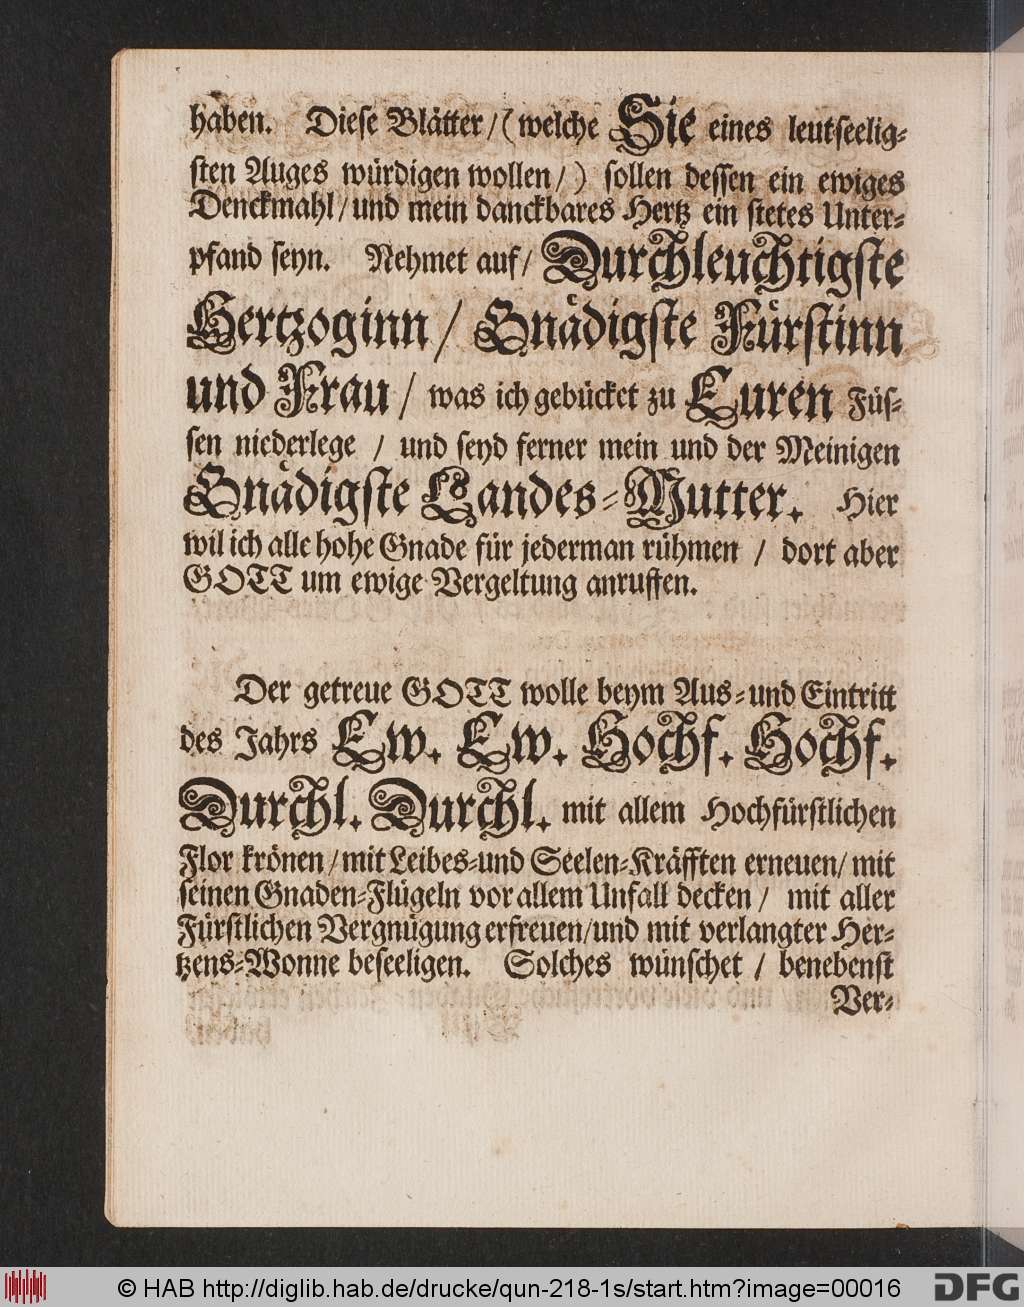 haben. Diese Blätter/ (welche Sie eines leutseelig-
sten Auges würdigen wollen/) sollen dessen ein ewiges
Denckmahl/ und mein danckbares Hertz ein stetes Unter-
pfand seyn. Nehmet auf/ Durchleuchtigste
Hertzoginn/ Gnådigste Fürstinn
und Frau/ was ich gebücket zu Euren Füs-
sen niederlege / und seyd ferner mein und der Meinigen
Gnådigste Landes-Mutter. Hier
wil ich alle hohe Gnade für jederman rühmen / dort aber
GOTT um ewige Vergeltung anruffen.
Der getreue GOTT wolle beym Aus- und Eintritt
des Jahrs Ew. Ew. Hochf. Hochf.
Durchl. Durchl. mit allem Hochfürstlichen
Flor krönen/ mit Leibes- und Seelen-Kräfften erneuen/ mit
seinen Gnaden-Flügeln vor allem Unfall decken / mit aller
Fürstlichen Vergnügung erfreuen/ und mit verlangter Her-
tzens-Wonne beseeligen. Solches wünschet / benebenst
Ver-
© HAB http://diglib.hab.de/drucke/qun-218-1s/start.htm?image=00016
DFG